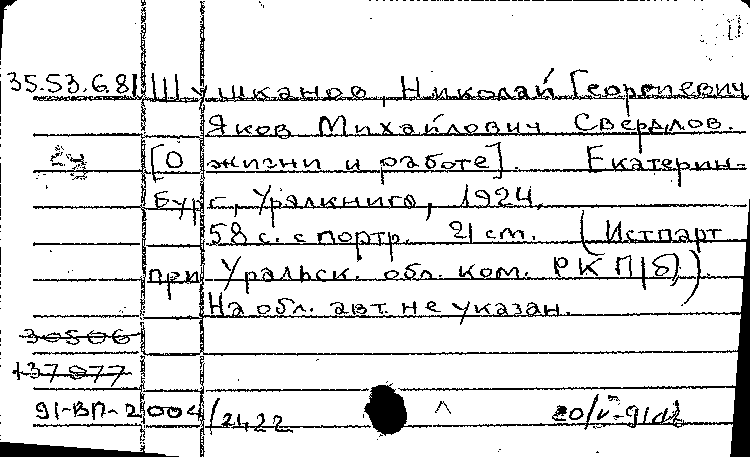 35.53.6.81 Шушканов, Николай Георгиевич
Яков Михайлович Свердлов.
[О жизни и работе]. Екатерин-
бург, Уралкнига, 1924.
58 с. с портр. 21 см. (Истпарт
при Уральск. обл. ком. РКП(б)).
На обл. авт. не указан.
30506
137977
91-ВП-2004/2422